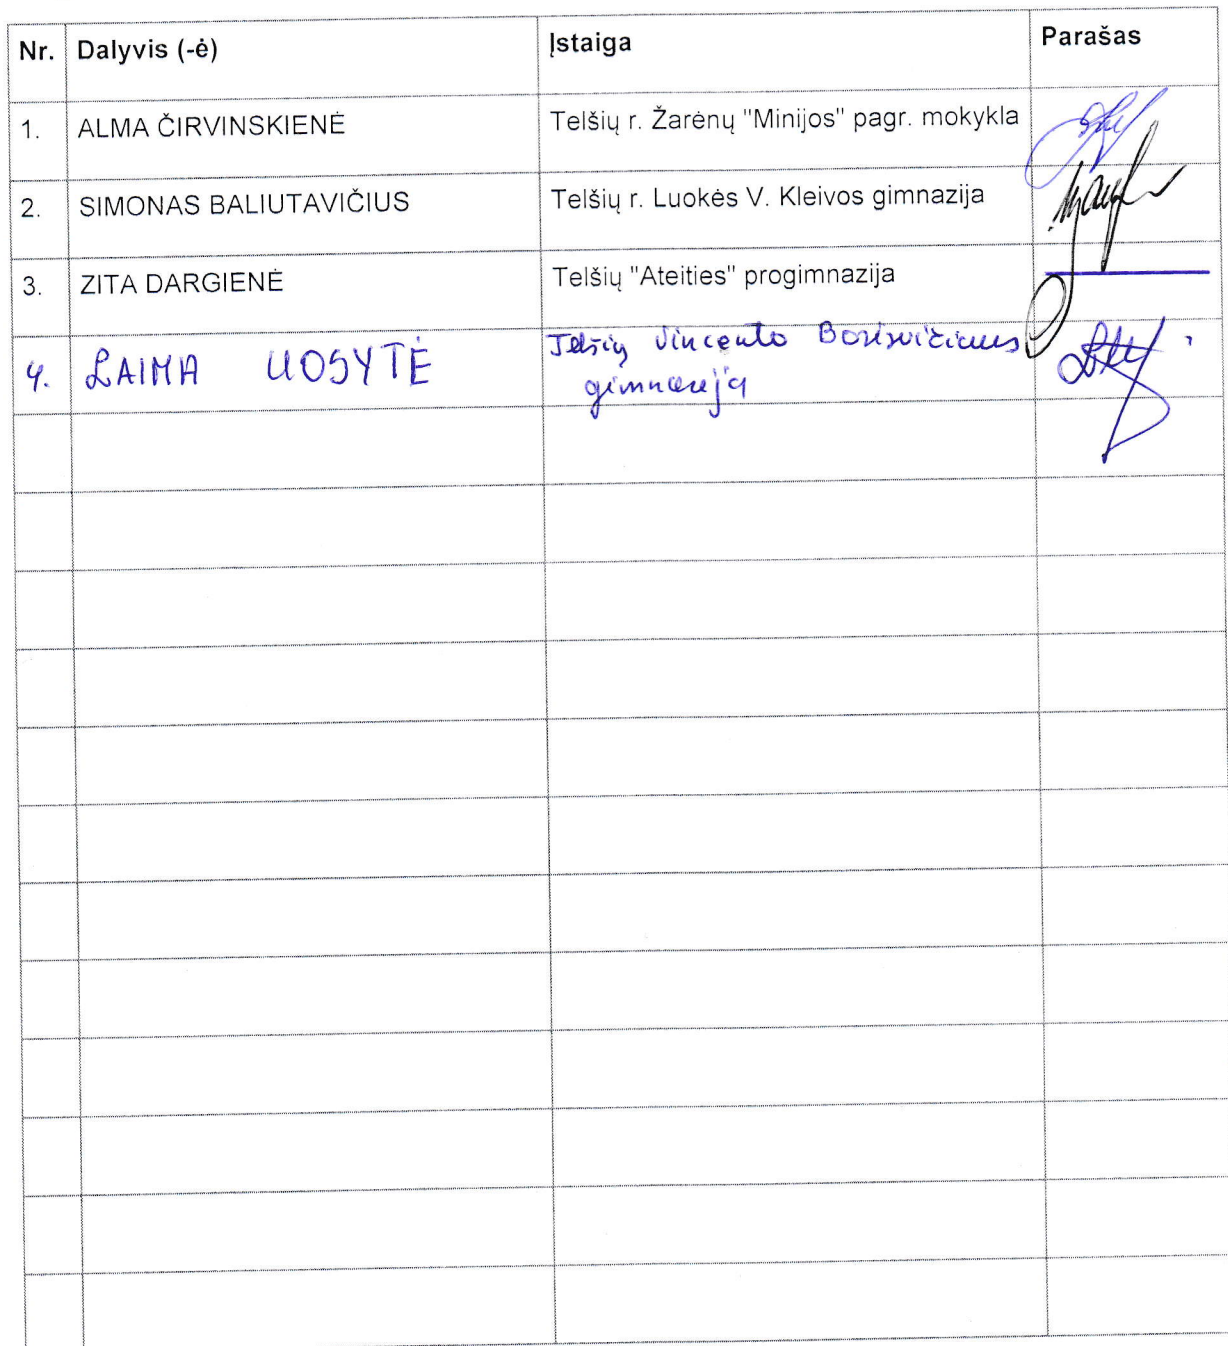 Nr. Dalyvis (-ė) Įstaiga Parašas
1. ALMA ČIRVINSKIENĖ Telšių r. Žarėnų "Minijos" pagr. mokykla
2. SIMONAS BALIUTAVIČIUS Telšių r. Luokės V. Kleivos gimnazija
3. ZITA DARGIENĖ Telšių "Ateities" progimnazija
4. LAIMA UOSYTĖ Telšių Vincento Borisevičiaus
gimnazija